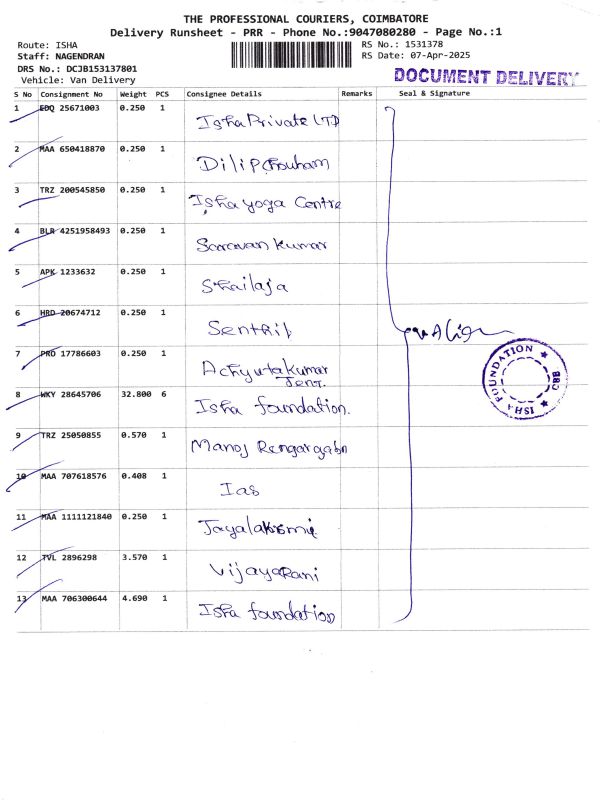 THE PROFESSIONAL COURIERS, COIMBATORE
Delivery Runsheet - PRR - Phone No.:9047080280 - Page No.:1
Route: ISHA
Staff: NAGENDRAN
DRS No.: DCJB153137801
Vehicle: Van Delivery
RS No.: 1531378
RS Date: 07-Apr-2025
DOCUMENT DELIVERY
S No Consignment No Weight PCS Consignee Details Remarks Seal & Signature
1 EDQ 25671003 0.250 1 Isha Private LTD
2 MAA 650418870 0.250 1 Dilip Chouham
3 TRZ 200545850 0.250 1 Isha yoga Centre
4 BLR 4251958493 0.250 1 Saravan kumar
5 APK 1233632 0.250 1 Shailaja
6 HRD 20674712 0.250 1 Senthil
7 PRO 17786603 0.250 1 Achyutakumar
Jena.
8 WKY 28645706 32.800 6 Isha foundation.
9 TRZ 25050855 0.570 1 Manoj
10 MAA 707618576 0.408 1 Ias
11 MAA 1111121840 0.250 1 Jayalakshmi
12 TVL 2896298 3.570 1 VijayaRani
13 MAA 706300644 4.690 1 Isha foundation
ISHA FOUNDATION
CBB